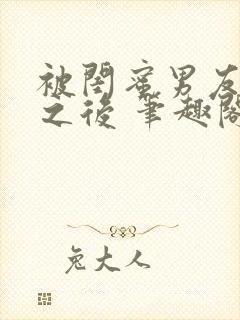 被閨蜜男友
之後 筆趣閣
兔大人